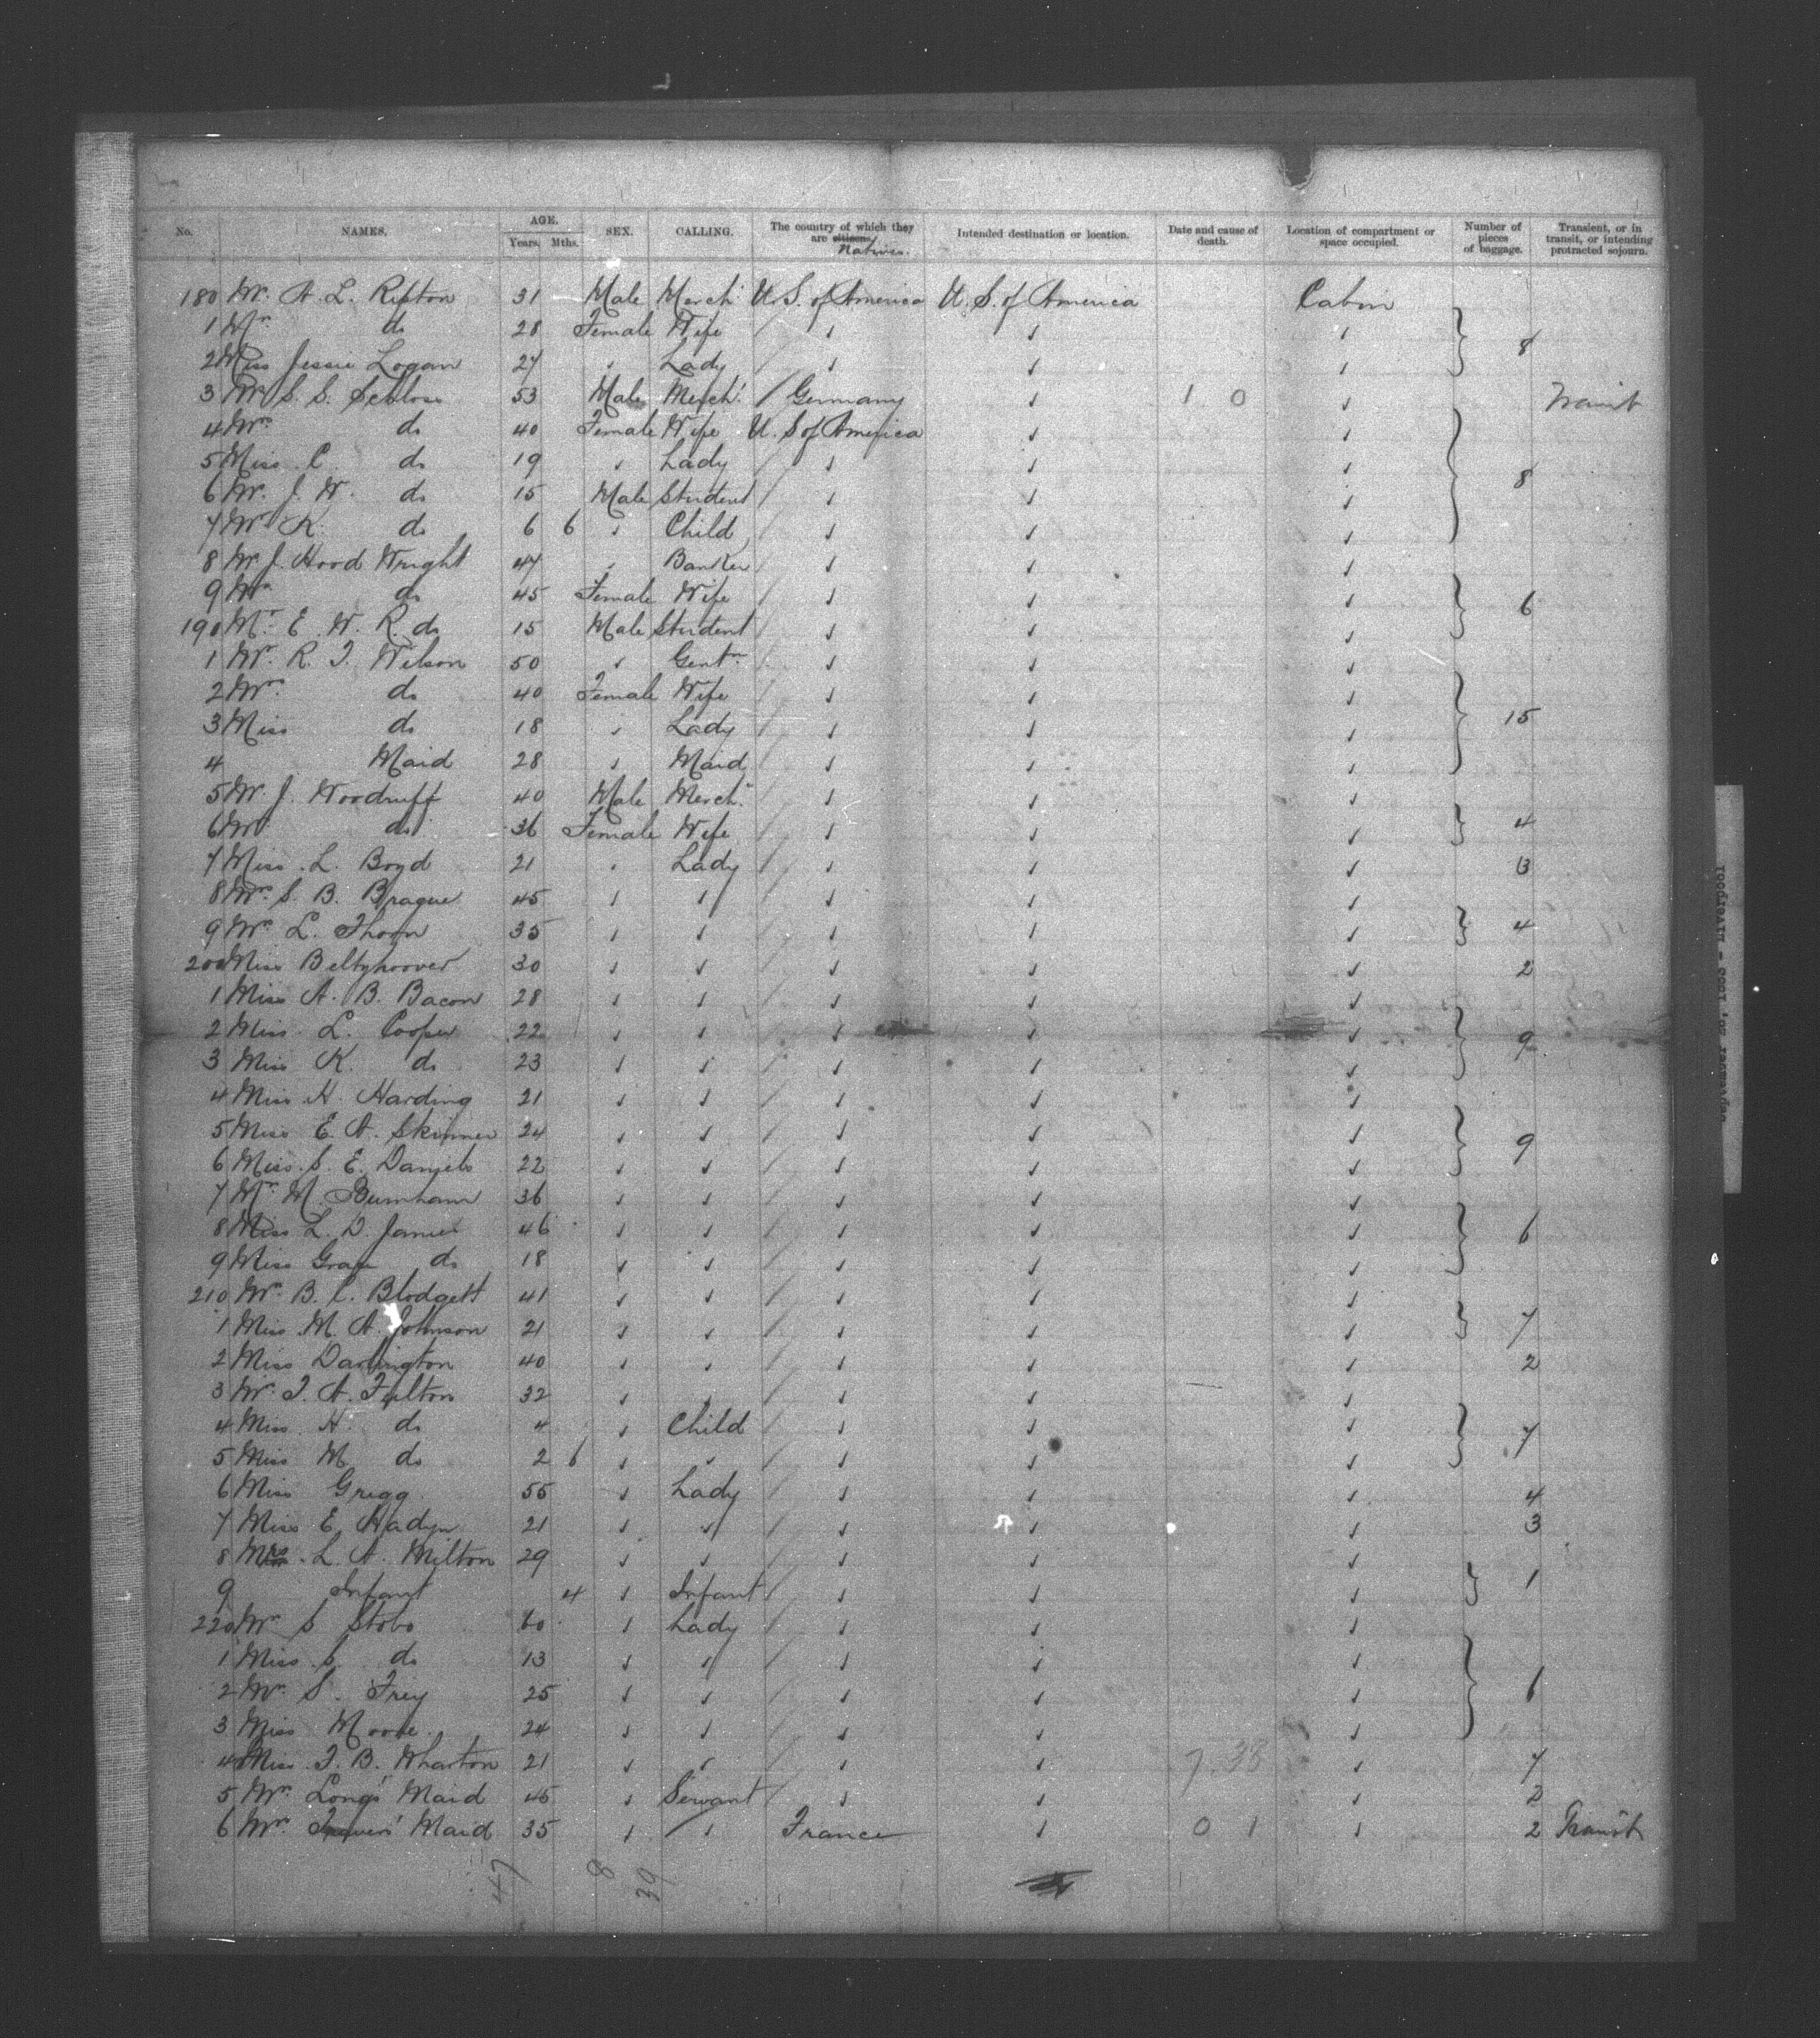 No. NAMES. AGE. Years. Mths. SEX. CALLING. The country of which they are citizens. Natives. Intended destination or location. Date and cause of death. Location of compartment or space occupied. Number of pieces of baggage. Transient, or in transit, or intending protracted sojourn.
180 Mr. A. L. Rifton 31 Male Merch U. S. of America U. S. of America Cabin
1 Mrs do 28 Female Wife ✓ ✓ ✓
2 Miss Jessie Logan 27 ✓ Lady ✓ ✓ ✓ 8
3 Mr S. S. Schloss 53 Male Merch. Germany ✓ 1 0 ✓ Transit
4 Mrs do 40 Female Wife U. S of America ✓ ✓
5 Miss C. do 19 ✓ Lady ✓ ✓ ✓
6 Mr. J. W. do 15 Male Student ✓ ✓ ✓ 8
7 Mr K. do 6 6 ✓ Child ✓ ✓ ✓
8 Mr J. Hood Wright 47 ✓ Banker ✓ ✓ ✓
9 Mrs do 45 Female Wife ✓ ✓ ✓ 6
190 Mr E. W. R. do 15 Male Student ✓ ✓ ✓
1 Mr. R. T. Wilson 50 ✓ Gentn ✓ ✓ ✓
2 Mrs do 40 Female Wife ✓ ✓ ✓
3 Miss do 18 ✓ Lady ✓ ✓ ✓ 15
4 Maid 28 ✓ Maid ✓ ✓ ✓
5 Mr J. Woodruff 40 Male Merch. ✓ ✓ ✓
6 Mrs do 36 Female Wife ✓ ✓ ✓ 4
7 Miss L. Boyd 21 ✓ Lady ✓ ✓ ✓ 3
8 Mrs S. B. Brague 45 ✓ ✓ ✓ ✓ ✓
9 Mrs L. Thorn 35 ✓ ✓ ✓ ✓ ✓ 4
200 Miss Beltzhoover 30 ✓ ✓ ✓ ✓ ✓ 2
1 Miss A. B. Bacon 28 ✓ ✓ ✓ ✓ ✓
2 Miss L. Cooper 22 ✓ ✓ ✓ ✓ ✓ 9
3 Miss K. do 23 ✓ ✓ ✓ ✓ ✓
4 Miss H. Harding 21 ✓ ✓ ✓ ✓ ✓
5 Miss E. A. Skinner 24 ✓ ✓ ✓ ✓ ✓ 9
6 Miss S. E. Daniels 22 ✓ ✓ ✓ ✓ ✓
7 Mrs M. Burnham 36 ✓ ✓ ✓ ✓ ✓
8 Miss L. D. James 46 ✓ ✓ ✓ ✓ ✓ 6
9 Miss Grace do 18 ✓ ✓ ✓ ✓ ✓
210 Mrs B. C. Blodgett 41 ✓ ✓ ✓ ✓ ✓
1 Miss M. A. Johnson 21 ✓ ✓ ✓ ✓ ✓ 7
2 Miss Darlington 40 ✓ ✓ ✓ ✓ ✓ 2
3 Mrs T. A. Fulton 32 ✓ ✓ ✓ ✓ ✓
4 Miss H. do 4 ✓ Child ✓ ✓ ✓ 7
5 Miss M do 2 6 ✓ ✓ ✓ ✓ ✓
6 Miss Gregg 55 ✓ Lady ✓ ✓ ✓ 4
7 Miss E. Hadyn 21 ✓ ✓ ✓ ✓ ✓ 3
8 Mrs L. A. Milton 29 ✓ ✓ ✓ ✓ ✓
9 Infant 4 ✓ Infant ✓ ✓ ✓ 1
220 Mrs S Stobo 60 ✓ Lady ✓ ✓ ✓
1 Miss S. do 13 ✓ ✓ ✓ ✓ ✓
2 Mrs S. Frey 25 ✓ ✓ ✓ ✓ ✓ 6
3 Miss Moore 24 ✓ ✓ ✓ ✓ ✓
4 Miss T. B. Wharton 21 ✓ ✓ ✓ ✓ 7 38 ✓ 7
5 Mrs Long's Maid 45 ✓ Servant ✓ ✓ ✓ 2
6 Mrs Maid 35 ✓ ✓ France ✓ 0 1 ✓ 2 Transit
47 8 39